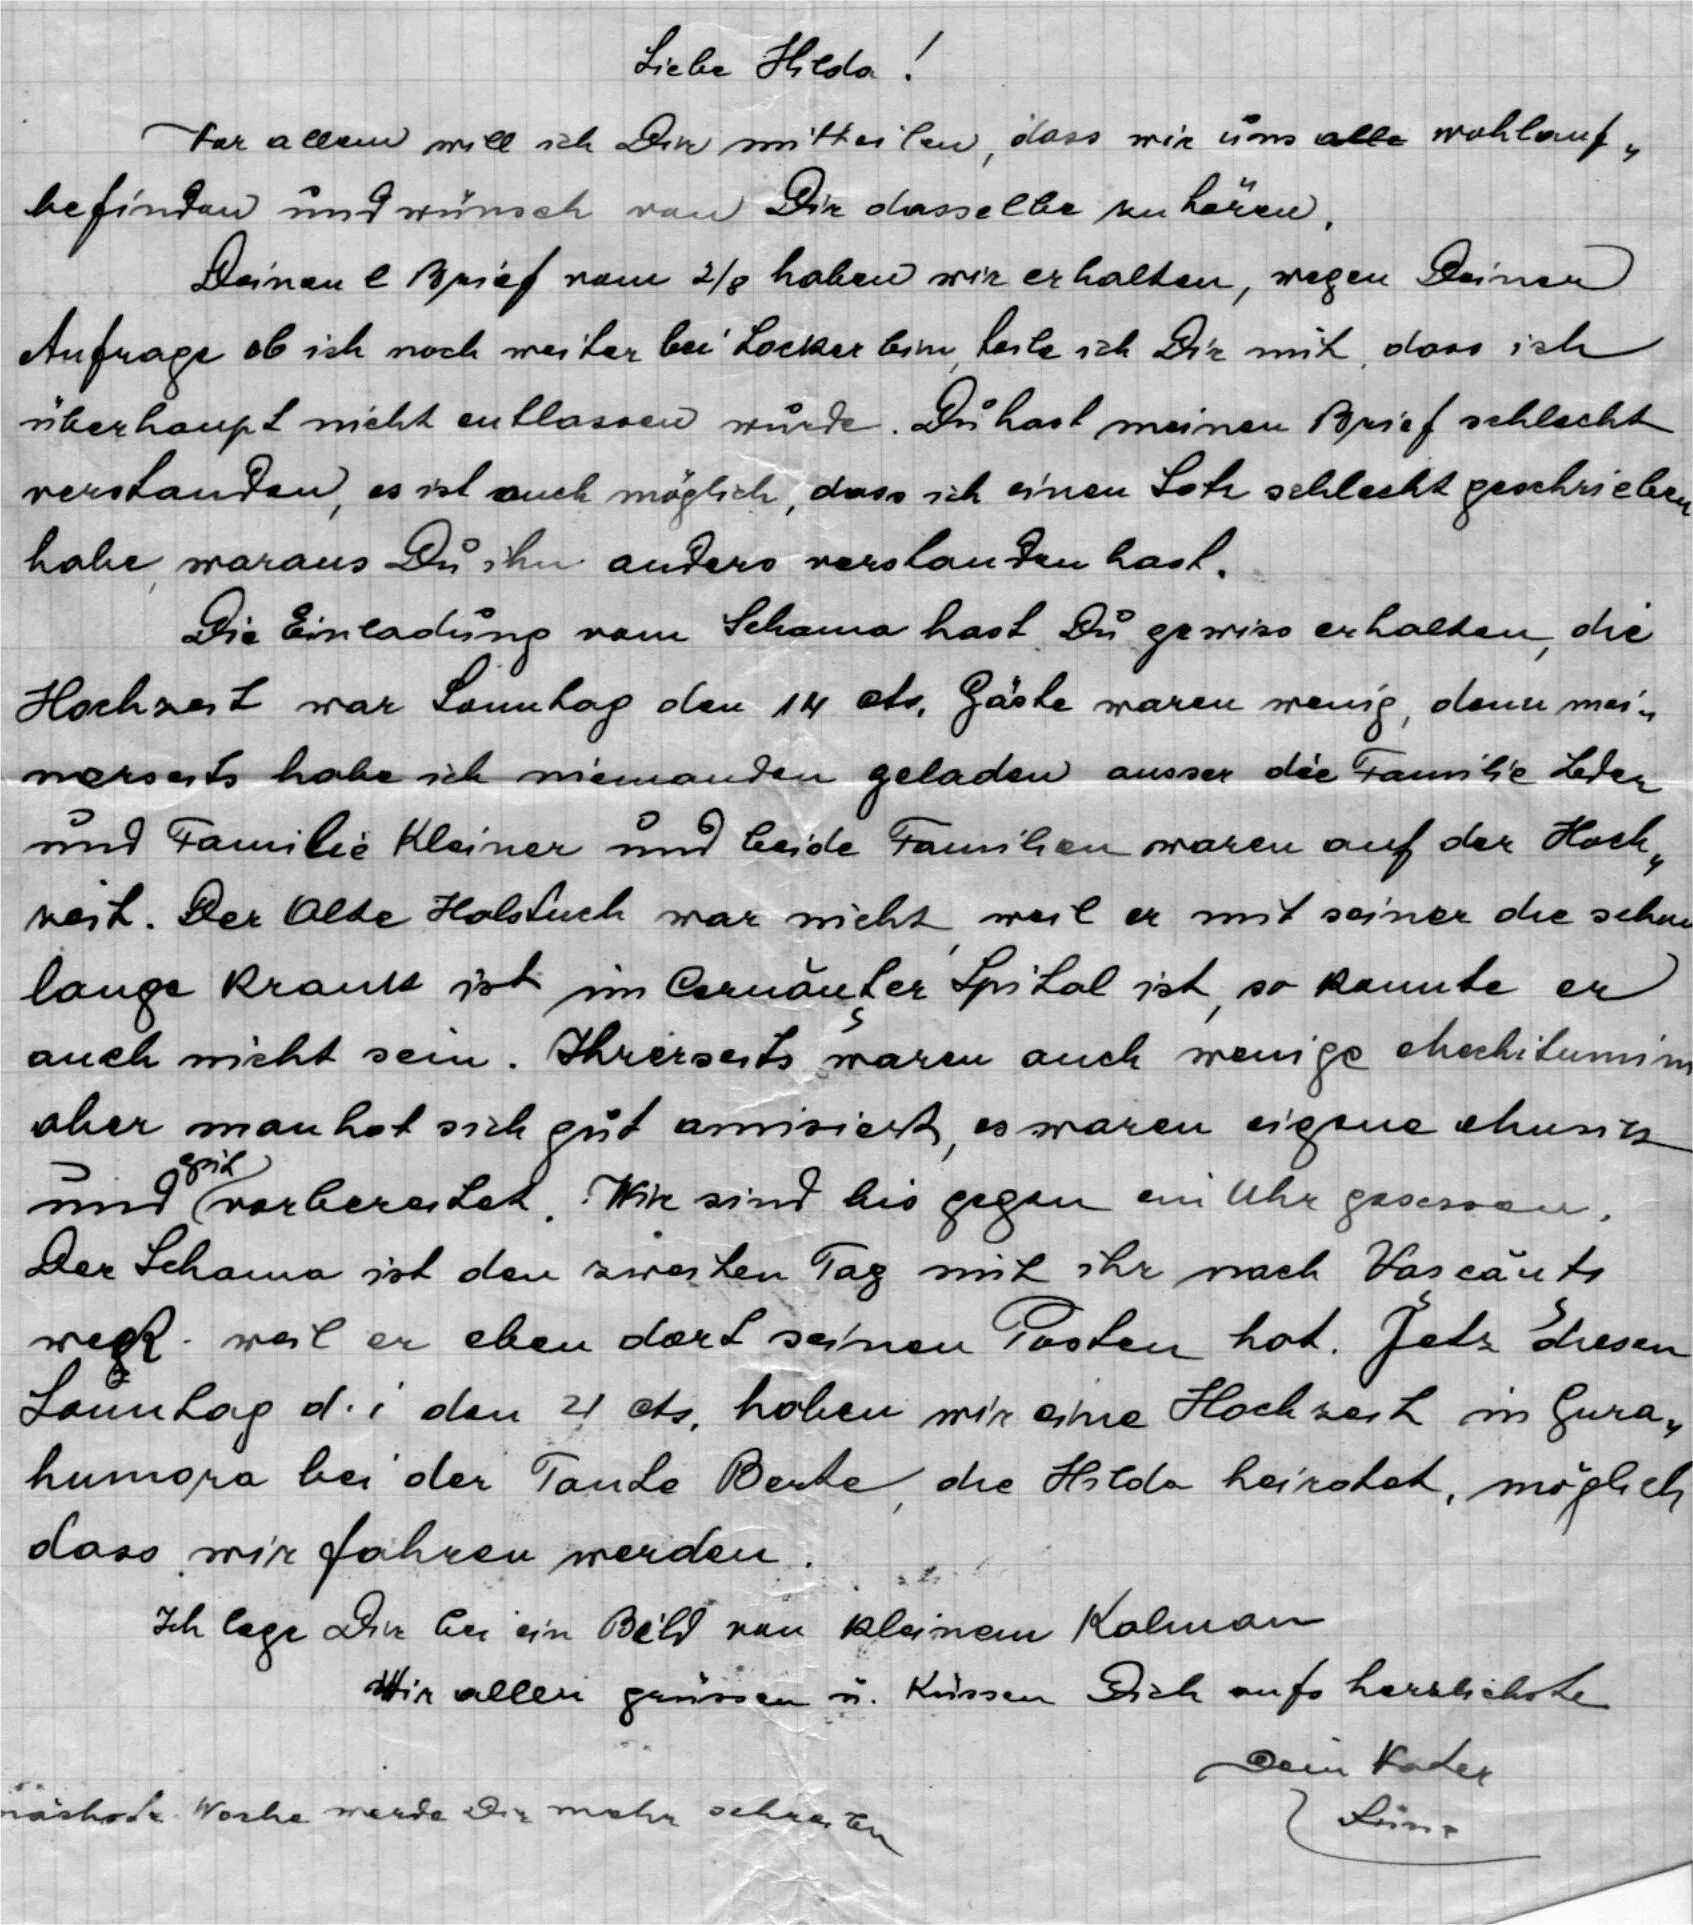 Liebe Hilda!
Vor allem will ich Dir mitteilen, dass wir uns alle wohlauf„
befinden und wünsch von Dir dasselbe zu hören.
Deinen l Brief vom 2/8 haben wir erhalten, wegen Deiner
Anfrage ob ich noch weiter bei Locker bin, teile ich Dir mit, dass ich
überhaupt nicht entlassen wurde. Du hast meinen Brief schlecht
verstanden, es ist auch möglich, dass ich einen Satz schlecht geschrieben
habe, waraus Du ihn anders verstanden hast.
Die Einladung vom Schama hast Du gewiss erhalten, die
Hochzeit war Sonntag den 14 cts. Gäste waren wenig, denn mei„
nerseits habe ich niemanden geladen ausser die Familie Leder
und Familie Kleiner und beide Familien waren auf der Hoch„
zeit. Der Alte Halstuch war nicht, weil er mit seiner die schon
lange krank ist im Cernăuțer Spital ist, so konnte er
auch nicht sein. Ihrerseits waren auch wenige Mechitunim
aber man hat sich gut amisiert, es waren eigene Musik
und gut vorbereitet. Wir sind bis gegen ein Uhr gesessen.
Der Schama ist den zweiten Tag mit ihr nach Vașcăuți
weg. weil er eben dort seinen Posten hat. Jetz diesen
Sonntag d. i den 21 cts. haben wir eine Hochzeit in Gura„
humora bei der Tante Berte, die Hilda heiratet, möglich
dass wir fahren werden.
Ich lege Dir bei ein Bild von kleinem Kalman
Wir allen grüssen u. küssen Dich aufs herzlichste
Dein Vater
nächste Woche werde Dir mehr schreiben